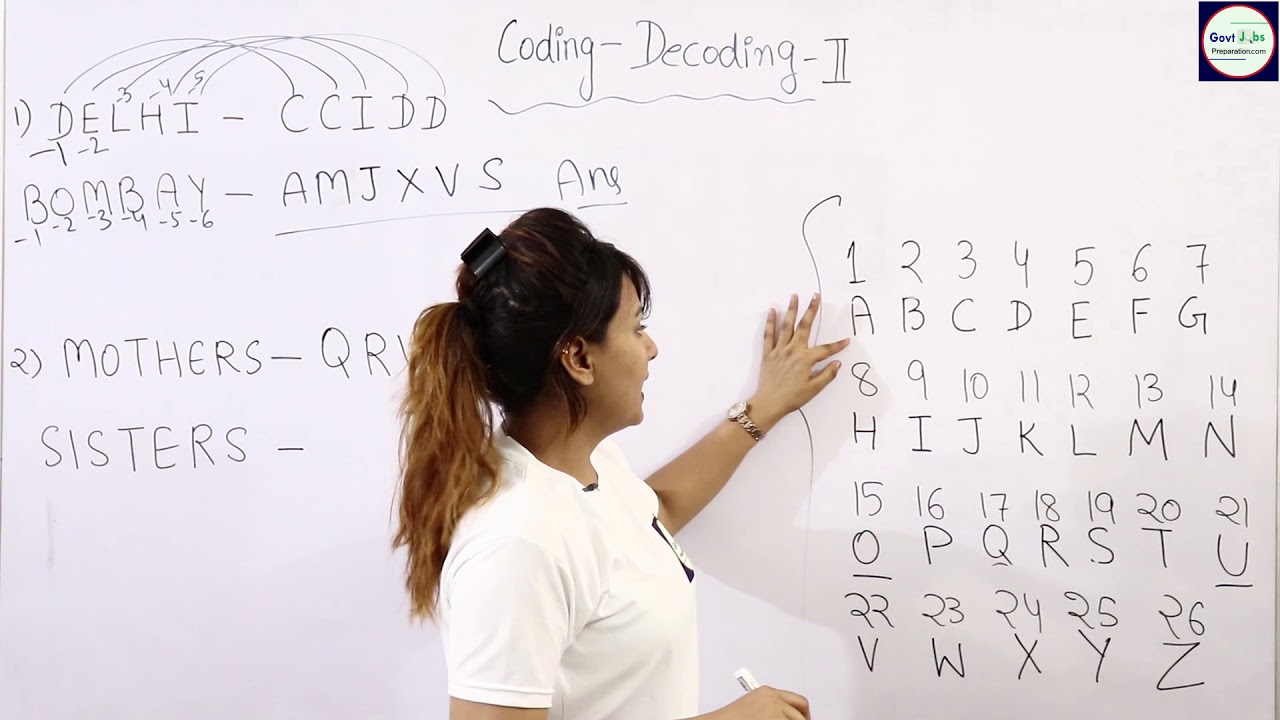 Govt Jobs
Preparation.com
Coding-Decoding-II
-3 -4 -5
1) DELHI - CCIDD
-1 -2
BOMBAY - AMJXVS Ans
-1 -2 -3 -4 -5 -6
2) MOTHERS - QRV
SISTERS -
1 2 3 4 5 6 7
A B C D E F G
8 9 10 11 12 13 14
H I J K L M N
15 16 17 18 19 20 21
O P Q R S T U
22 23 24 25 26
V W X Y Z